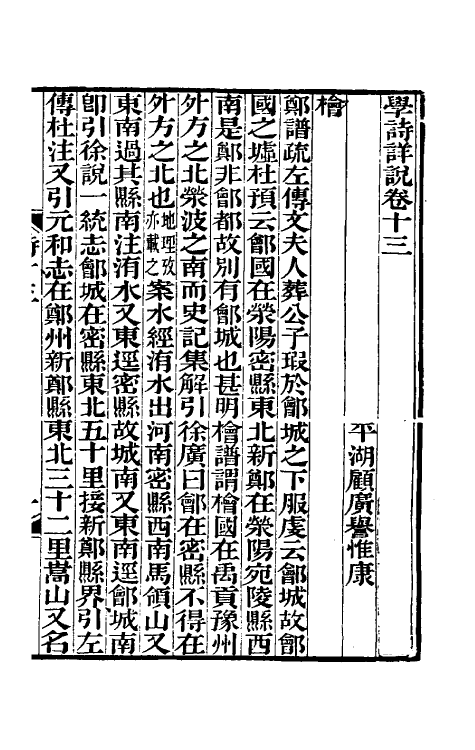 學詩詳說卷十三
平湖顧廣譽惟康
檜
鄭譜疏左傳文夫人葬公子瑕於鄶城之下服虔云鄶城故鄶
國之墟杜預云鄶國在滎陽密縣東北新鄭在滎陽宛陵縣西
南是鄭非鄶都故別有鄶城也甚明檜譜謂檜國在禹貢豫州
外方之北滎波之南而史記集解引徐廣曰鄶在密縣不得在
外方之北也地理攷亦載之案水經洧水出河南密縣西南馬領山又
東南過其縣南注洧水又東逕密縣故城南又東南逕鄶城南
卽引徐說一統志鄶城在密縣東北五十里接新鄭縣界引左
傳杜注又引元和志在鄭州新鄭縣東北三十二里嵩山又名